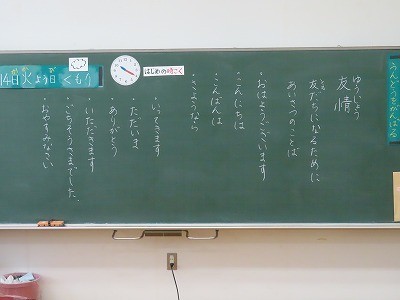 うんどうをがんばる
ゆうじょう
友情
とも
友だちになるために
あいさつのことば
・おはようございます
・こんにちは
・こんばんは
・さようなら
・いってきます
・ただいま
・ありがとう
・いただきます
・ごちそうさまでした。
・おやすみなさい
はじめの時こく
14日火よう日くもり